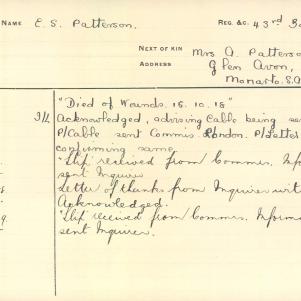 NAME E. S. Patterson. REG. &C. 43rd
NEXT OF KIN Mrs A. Patterso
ADDRESS Glen Avon,
Monarto. S.A
"Died of Wounds. 15. 10. 18"
Acknowledged, advising Cable being se
P/Cable sent Commis. London. P/Letter
confirming same
"Slip" received from Commis. Inform
sent Inquirer
Letter of thanks from Inquirer wit
Acknowledged.
"Slip" received from Commis. Inform
sent Inquirer.